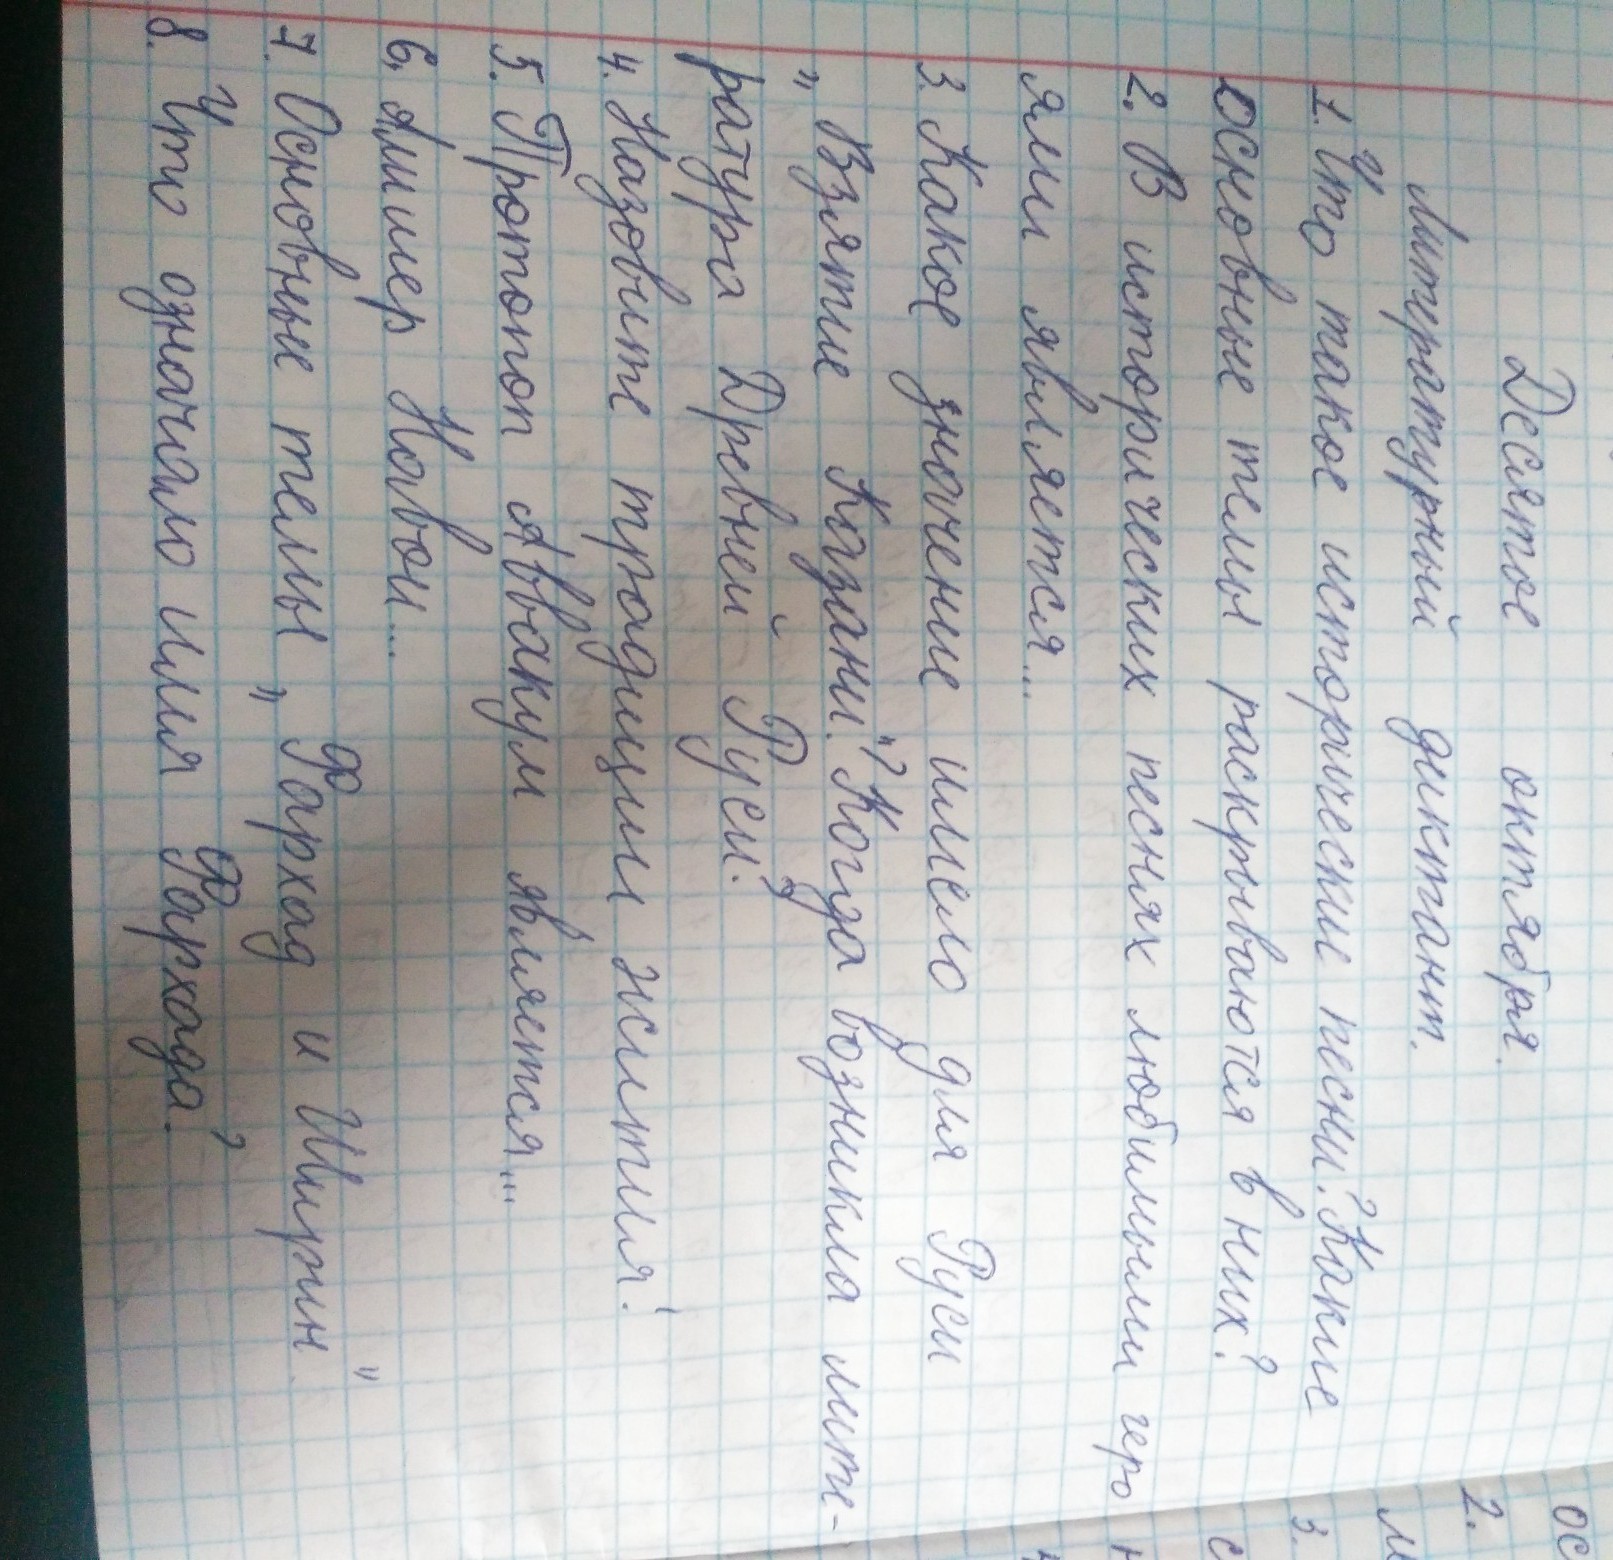 Десятое октября.
Литературный диктант.
1. Что такое исторические песни? Какие
основные темы раскрываются в них?
2. В исторических песнях любимыми геро
ями является...
3. Какое значение имело для Руси
„Взятие Казани"? Когда возникла лите-
ратура Древней Руси?
4. Назовите традиции жития!
5. Протопоп Аввакум является...
6. Алишер Навои...
7. Основные темы „Фархад и Ширин"
8. Что означало имя Фархада?
ос
2.
м
3.
с
н